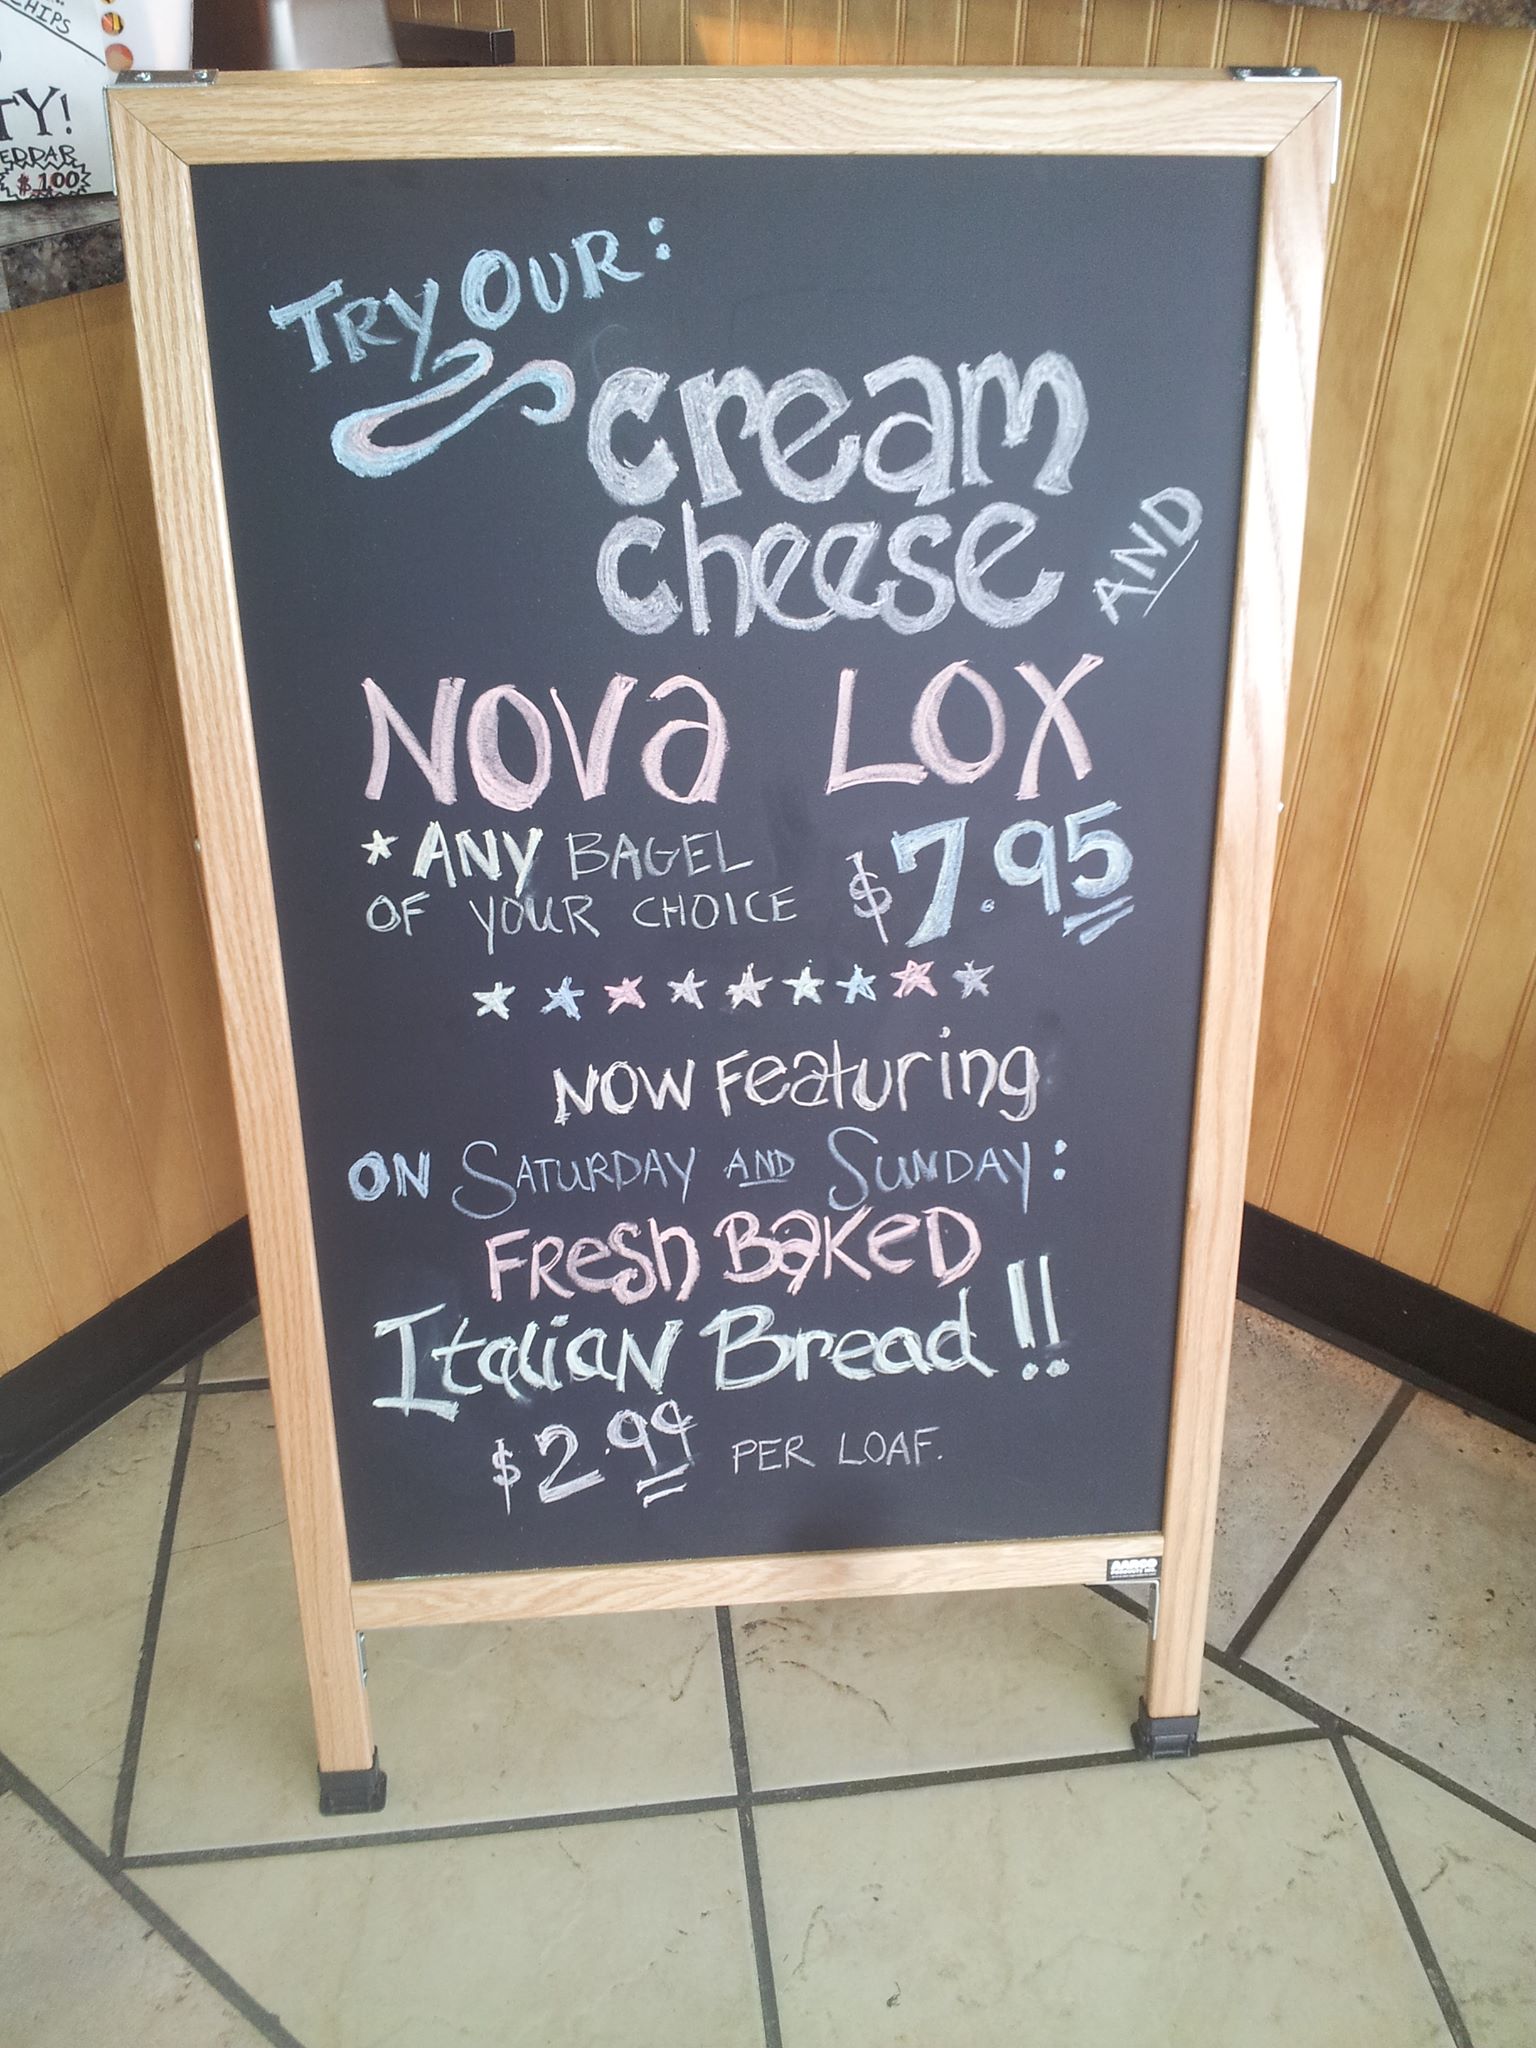 CHIPS
TY!
EDDAR
$1.00
TRY OUR:
cream
cheese AND
NOVa LOX
* ANY BAGEL
OF YOUR CHOICE $7.95
NOW Featuring
ON SATURDAY AND SUNDAY:
FResh BaKeD
ItaliaN Bread!!
$2.99 PER LOAF.